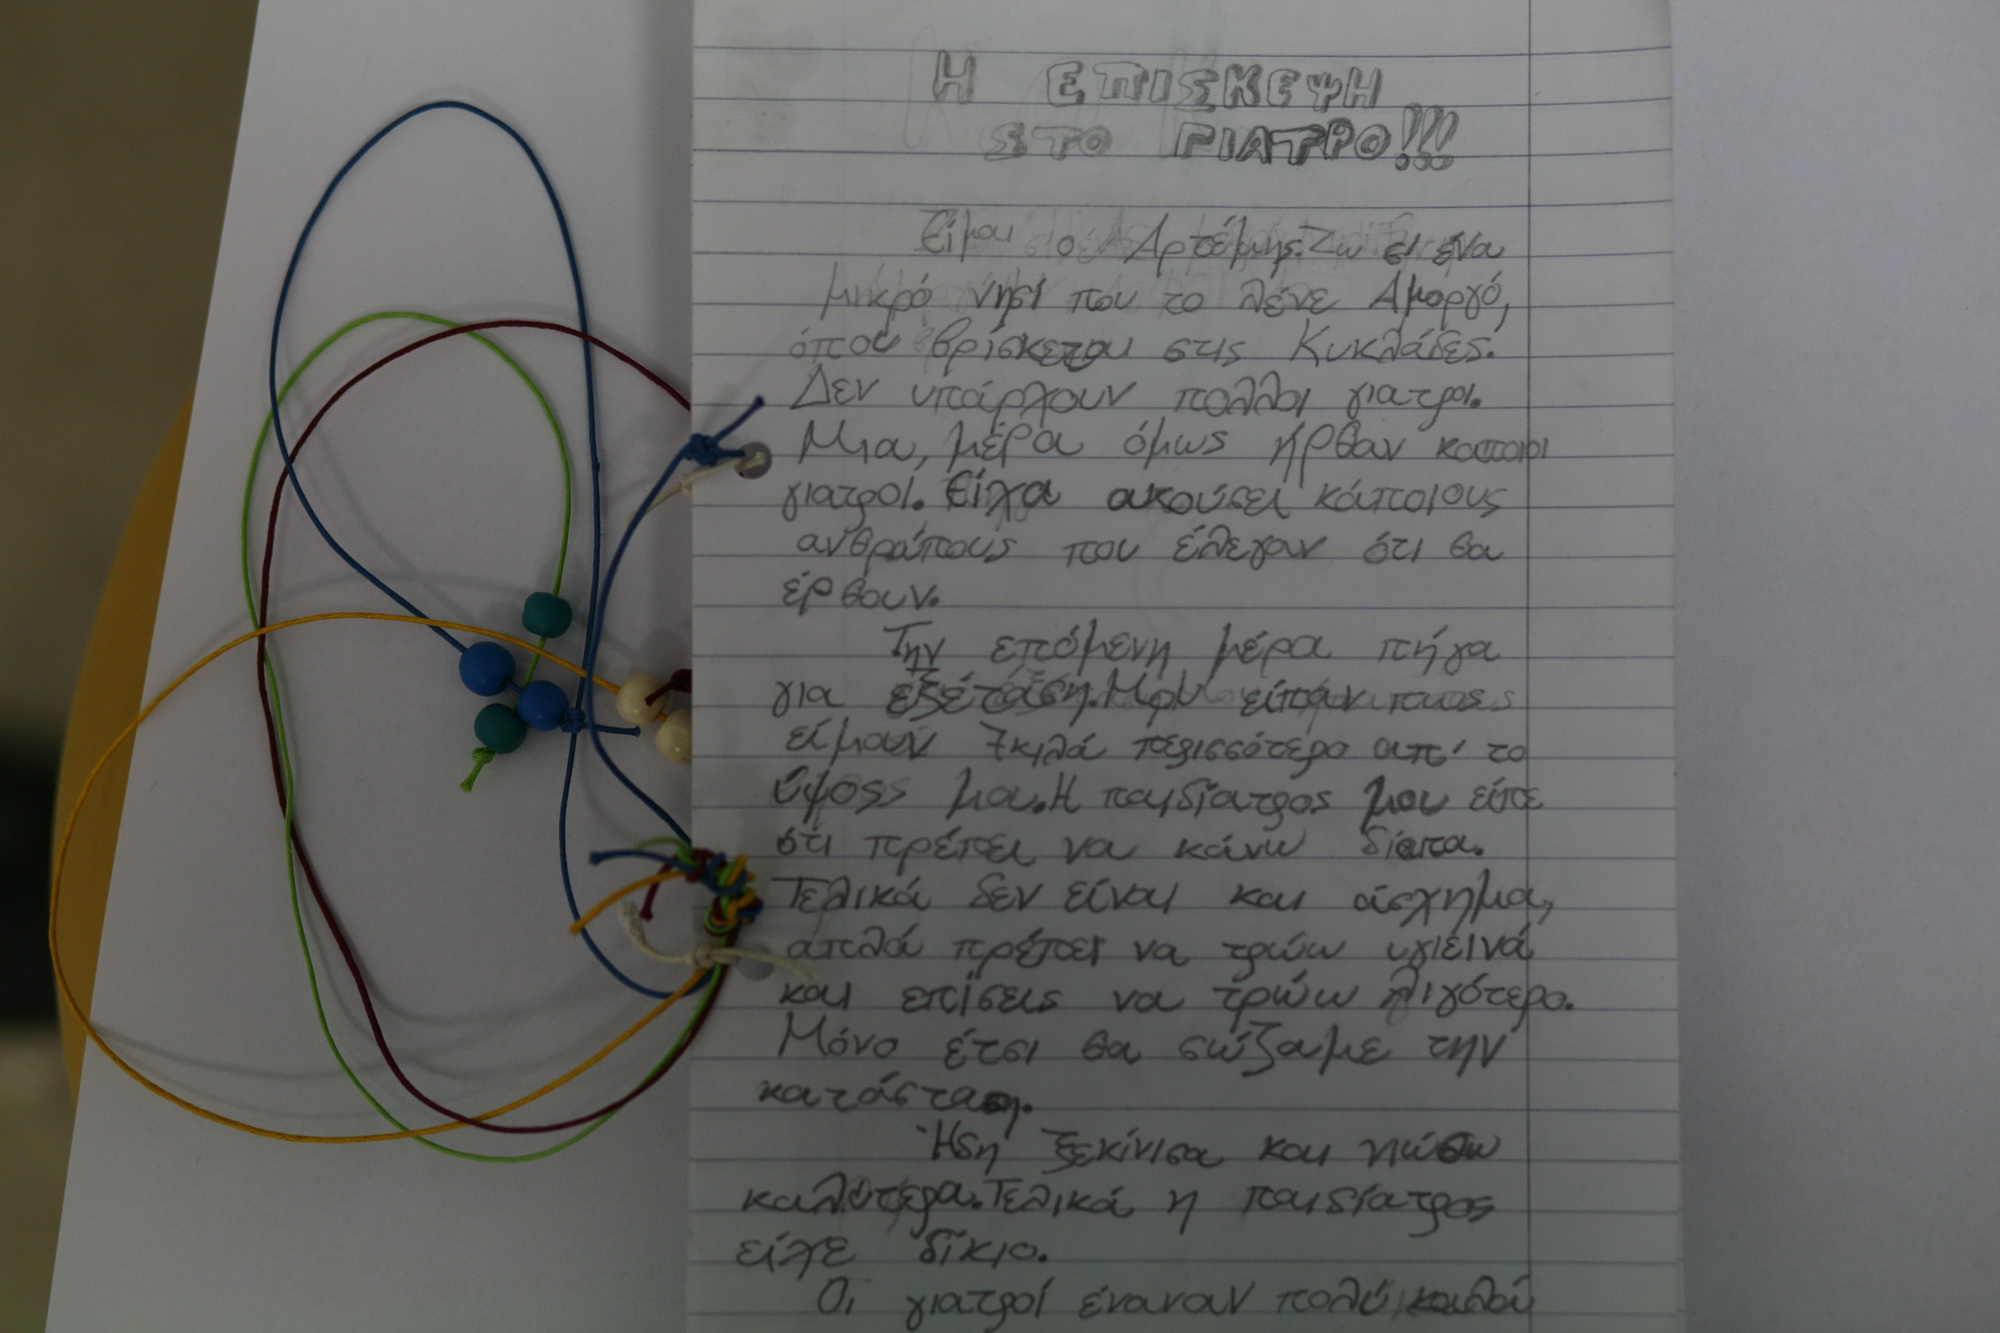 Η ΕΠΙΣΚΕΨΗ
ΣΤΟ ΓΙΑΤΡΟ!!!
Είμαι ο Αρτέμης. Ζω σε ένα
μικρό νησί που το λένε Αμοργό,
όπου βρίσκεται στις Κυκλάδες.
Δεν υπάρχουν πολλοί γιατροί.
Μια, μέρα όμως ήρθαν κάποιοι
γιατροί. Είχα ακούσει κάποιους
ανθρώπους που έλεγαν ότι θα
έρθουν.
Την επόμενη μέρα πήγα
για εξέταση. Μου είπαν πως
είμουν 7κιλά περισσότερο απ' το
ύψος μου. Η παιδίατρος μου είπε
ότι πρέπει να κάνω δίαιτα.
Τελικά δεν είναι και άσχημα,
απλά πρέπει να τρώω υγιεινά
και επίσεις να τρώω λιγότερο.
Μόνο έτσι θα σώζαμε την
κατάσταση.
Ήδη ξεκίνισα και νιώθω
καλύτερα. Τελικά η παιδίατρος
είχε δίκιο.
Οι γιατροί έναναν πολύ καλού